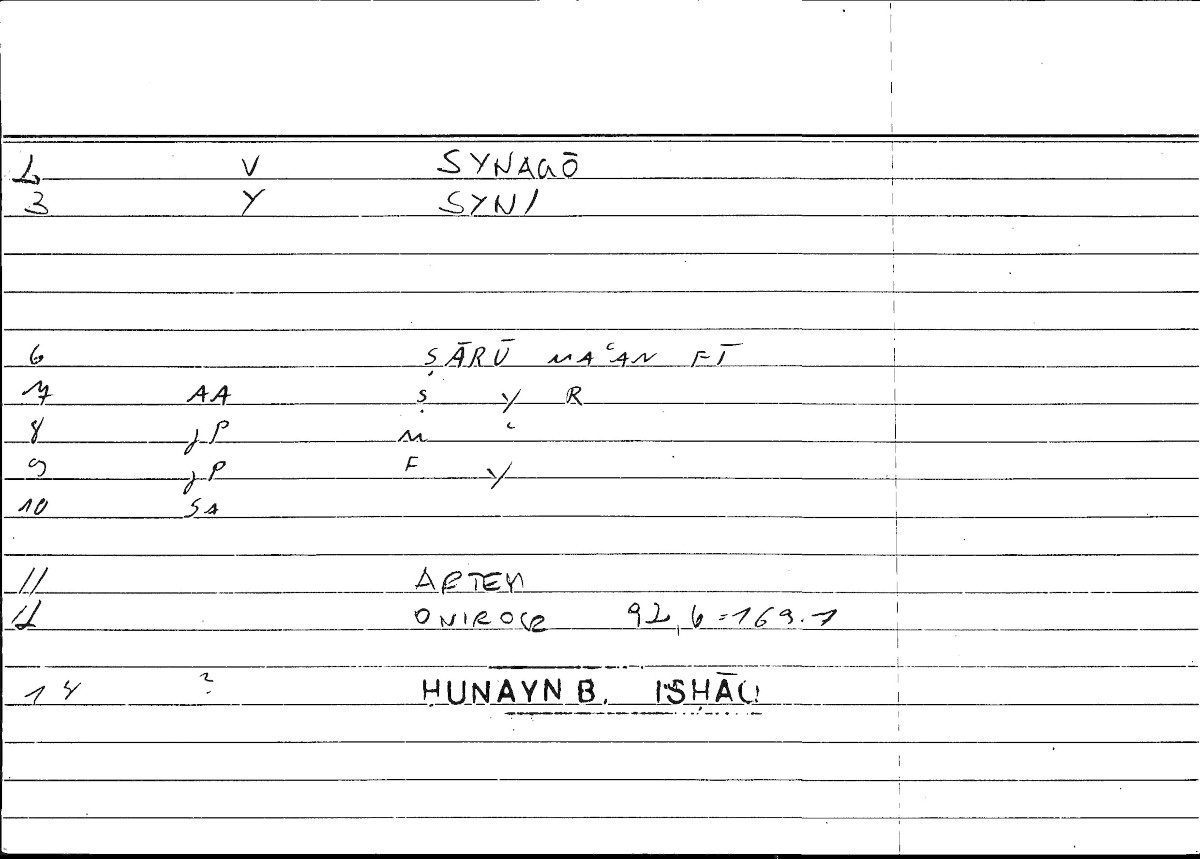 2 V SYNAGŌ
3 Y SYN/
6 ṢĀRŪ MAʿAN FĪ
7 AA Ṣ Y R
8 JP M ʿ
9 JP F Y
10 SA
11 ARTEM
12 ONIROCR 92,6=169.1
14 ? ḤUNAYN B. ISḤĀQ